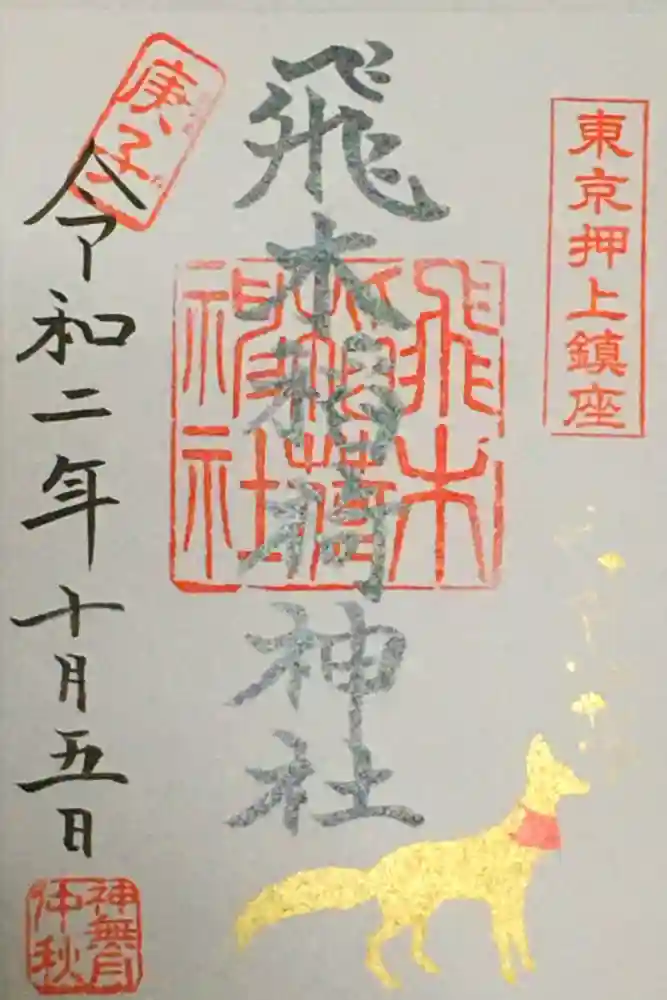 東京押上鎮座
飛木稲荷神社
飛木
稲荷
神社
庚子
令和二年十月五日
神無月
仲秋